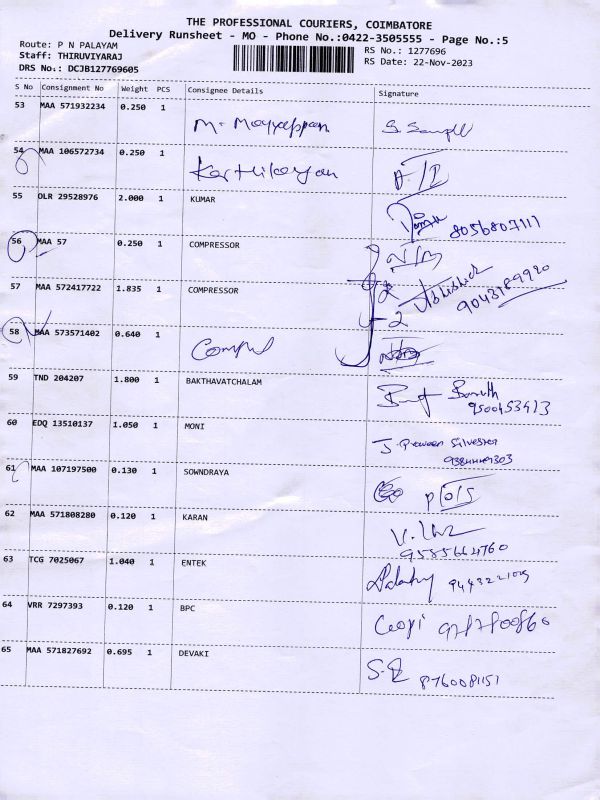 THE PROFESSIONAL COURIERS, COIMBATORE
Delivery Runsheet - MO - Phone No.:0422-3505555 - Page No.:5
Route: P N PALAYAM
RS No.: 1277696
Staff: THIRUVIYARAJ
RS Date: 22-Nov-2023
DRS No.: DCJB127769605
S No Consignment No Weight PCS Consignee Details Signature
53 MAA 571932234 0.250 1
54 MAA 106572734 0.250 1 Karthikeyan
55 OLR 29528976 2.000 1 KUMAR
8056807111
56 MAA 57 0.250 1 COMPRESSOR
57 MAA 572417722 1.835 1 COMPRESSOR Abhishek
9043789920
58 MAA 573571402 0.640 1
59 TND 204207 1.800 1 BAKTHAVATCHALAM
60 EDQ 13510137 1.050 1 MONI
J. Praveen Silvester
61 MAA 107197500 0.130 1 SOWNDRAYA
62 MAA 571808280 0.120 1 KARAN
9585664760
63 TCG 7025067 1.040 1 ENTEK
64 VRR 7297393 0.120 1 BPC
65 MAA 571827692 0.695 1 DEVAKI
8760081151